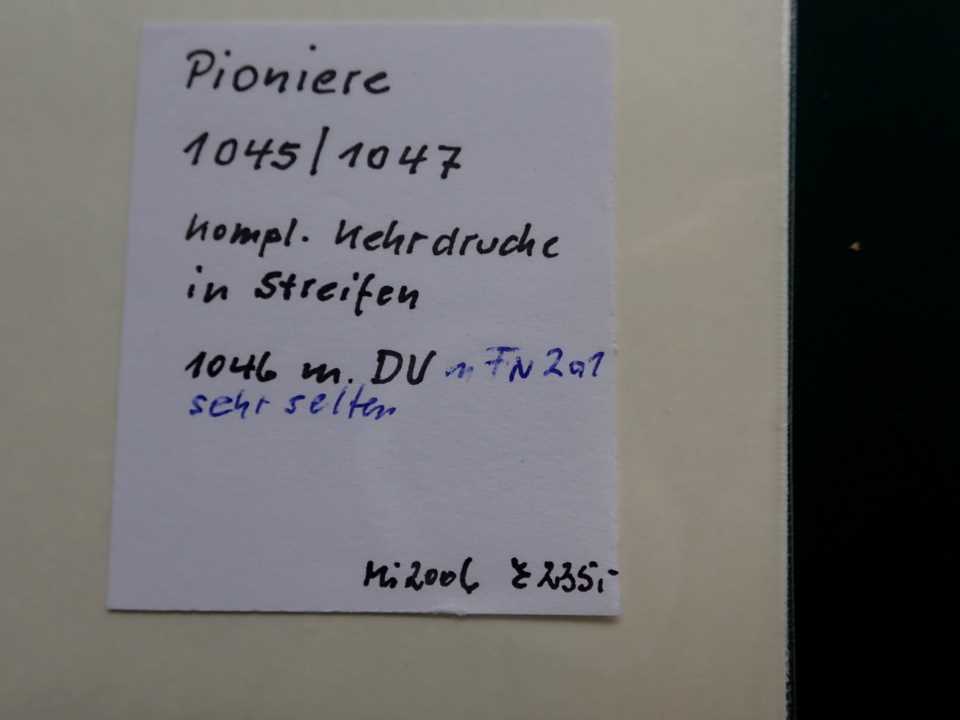 Pioniere
1045/1047
kompl. Kehrdrucke
in Streifen
1046 m. DV n FN 201
sehr selten
Mi 2006 € 235,-